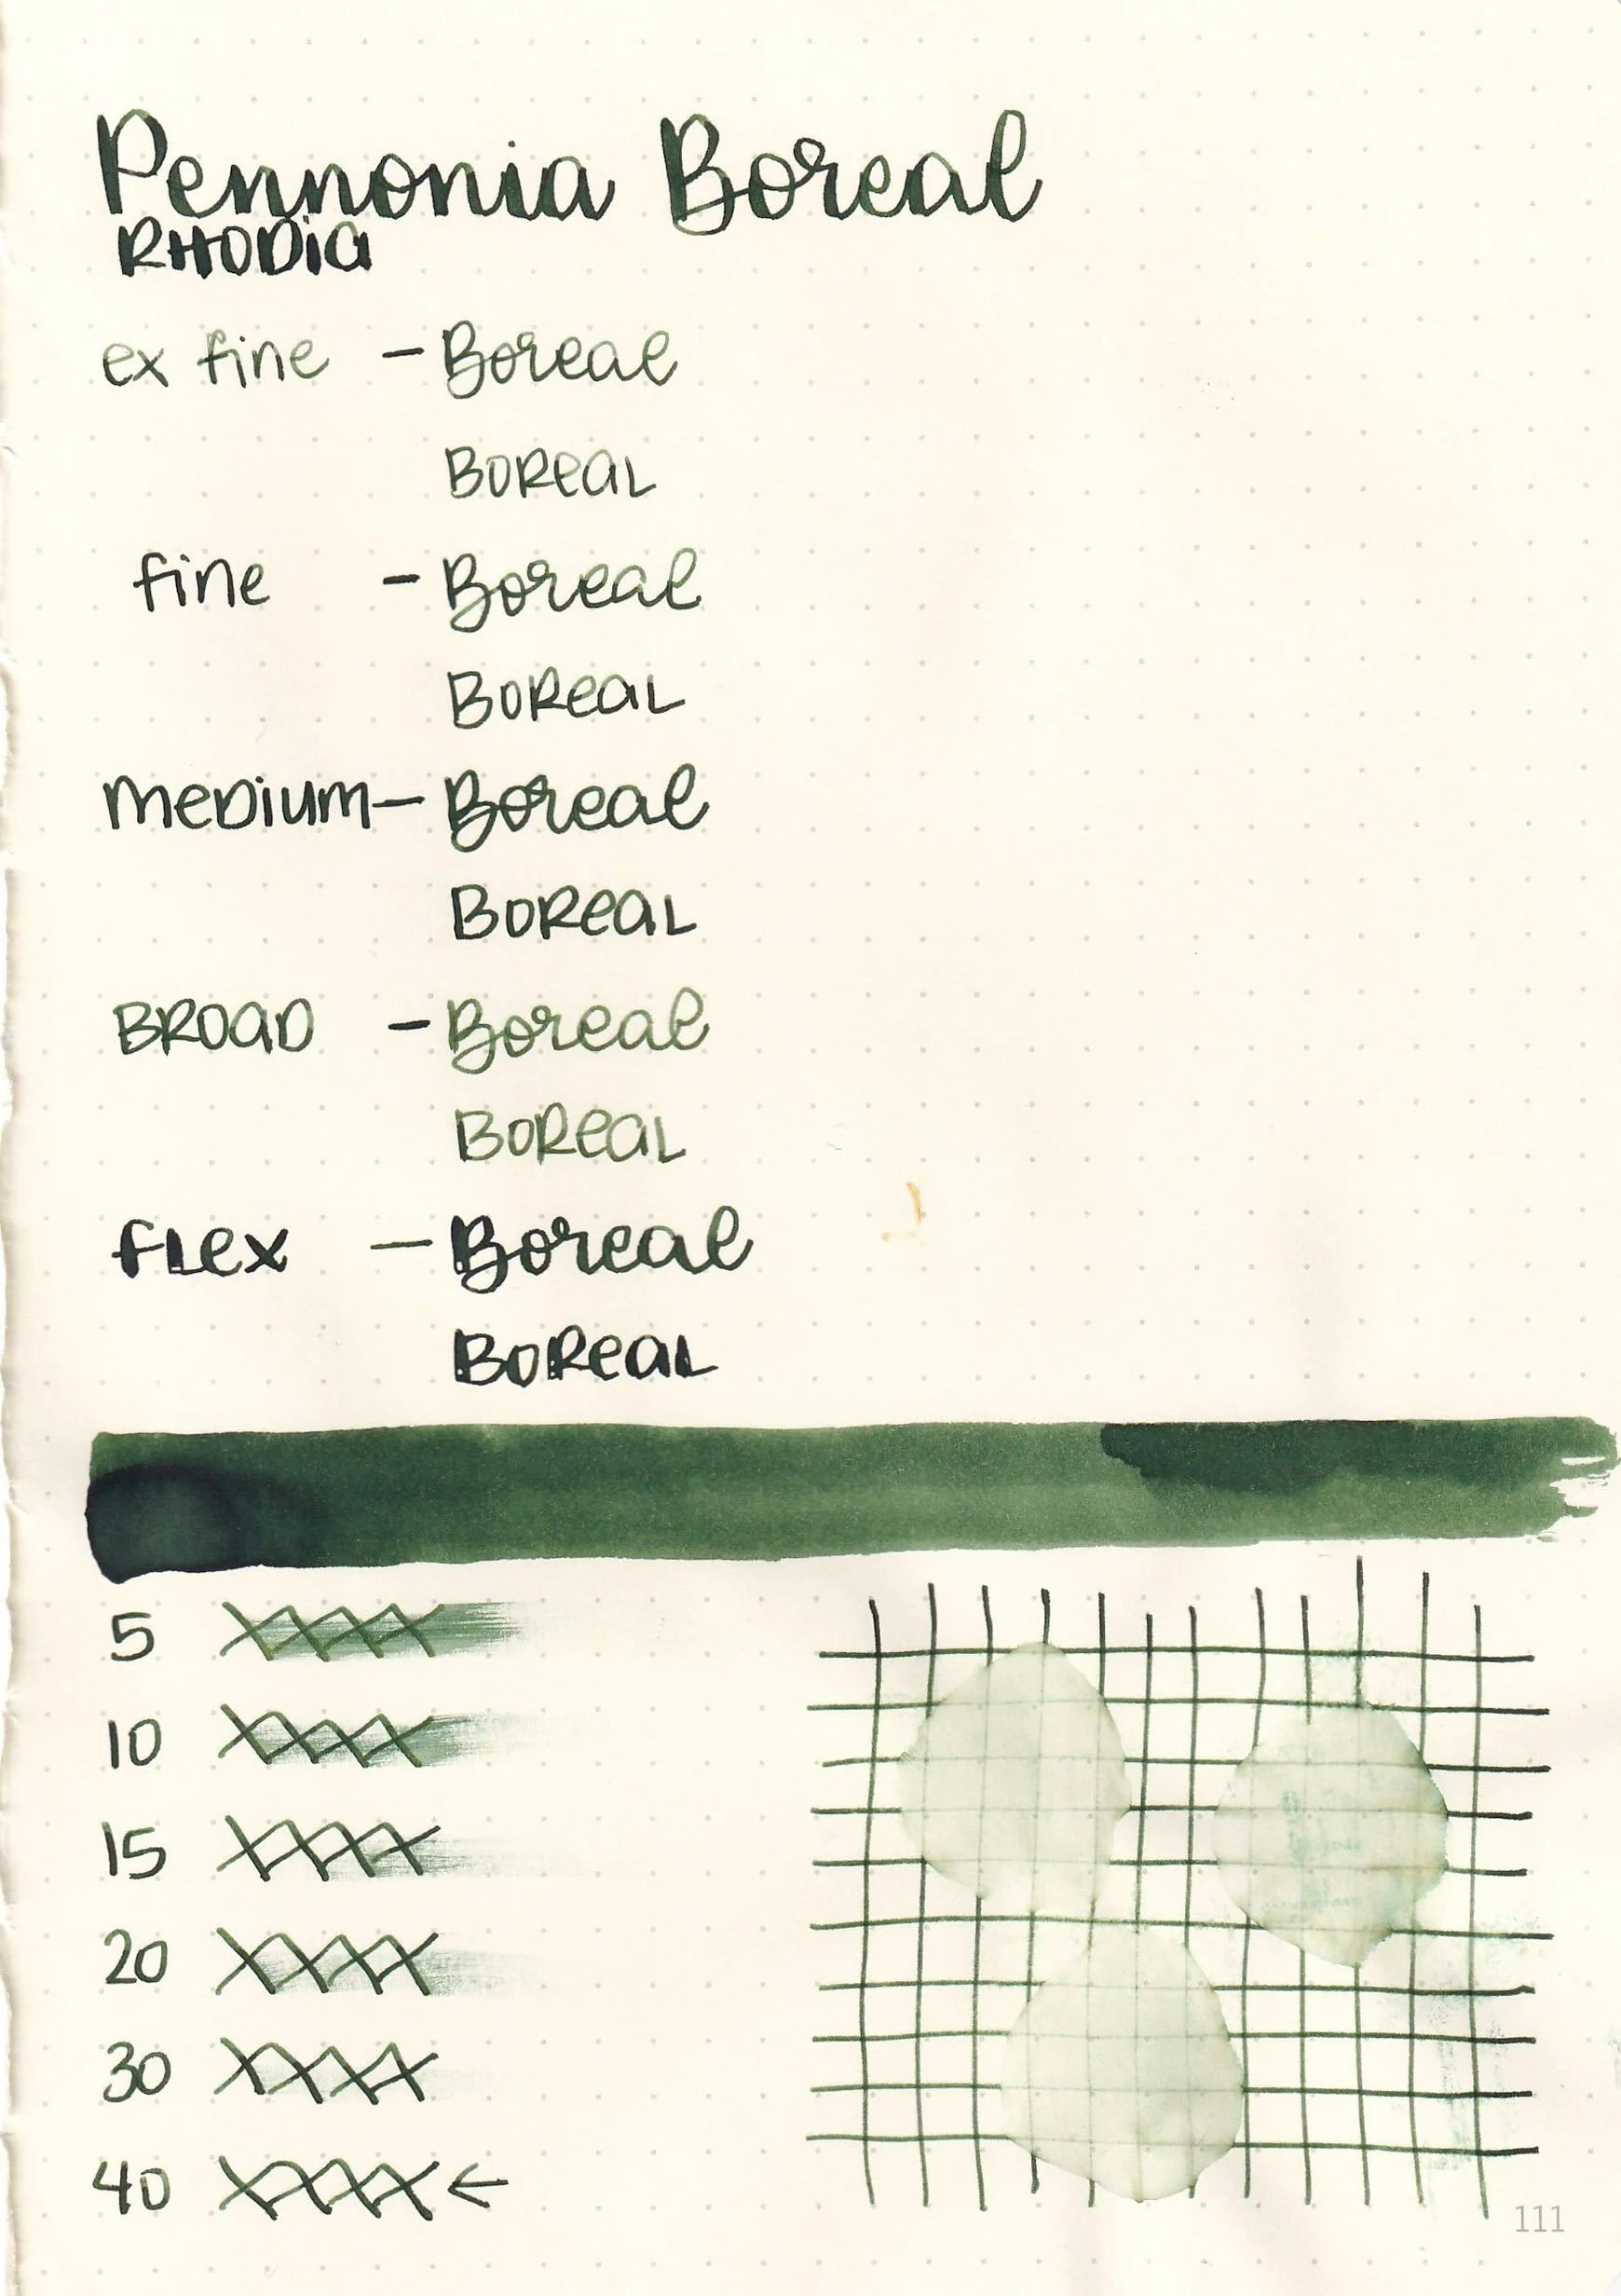 Pennonia Boreal
RHODia
ex fine - Boreal
BOReaL
fine - Boreal
BOReaL
meDium - Boreal
BOReaL
BROaD - Boreal
BOReaL
fLex - Boreal
BOReaL
5 XXXX
10 XXXX
15 XXXX
20 XXXX
30 XXXX
40 XXXX ←
111